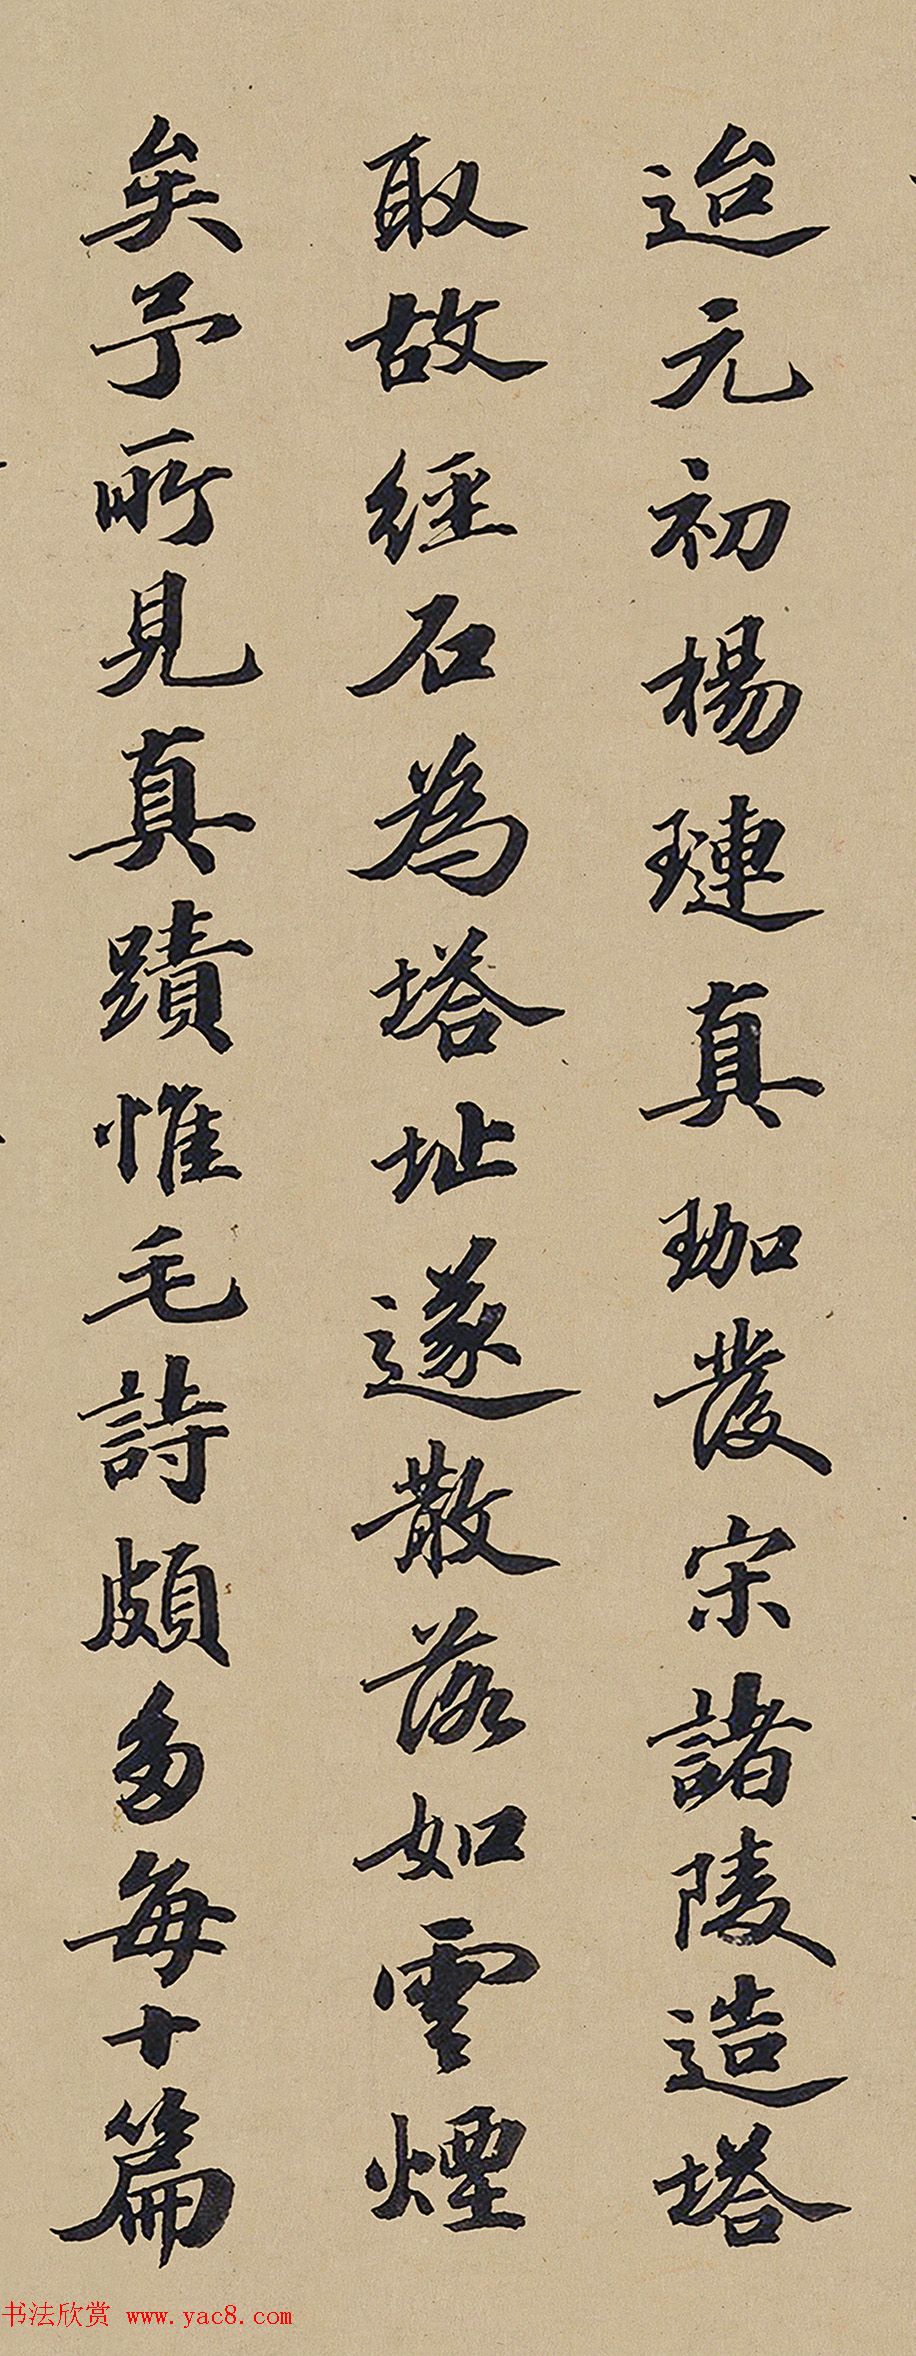 迨元初楊璉真珈發宋諸陵造塔
取故經石為塔址遂散落如雲煙
矣予所見真蹟惟毛詩頗多每十篇
书法欣赏 www.yac8.com